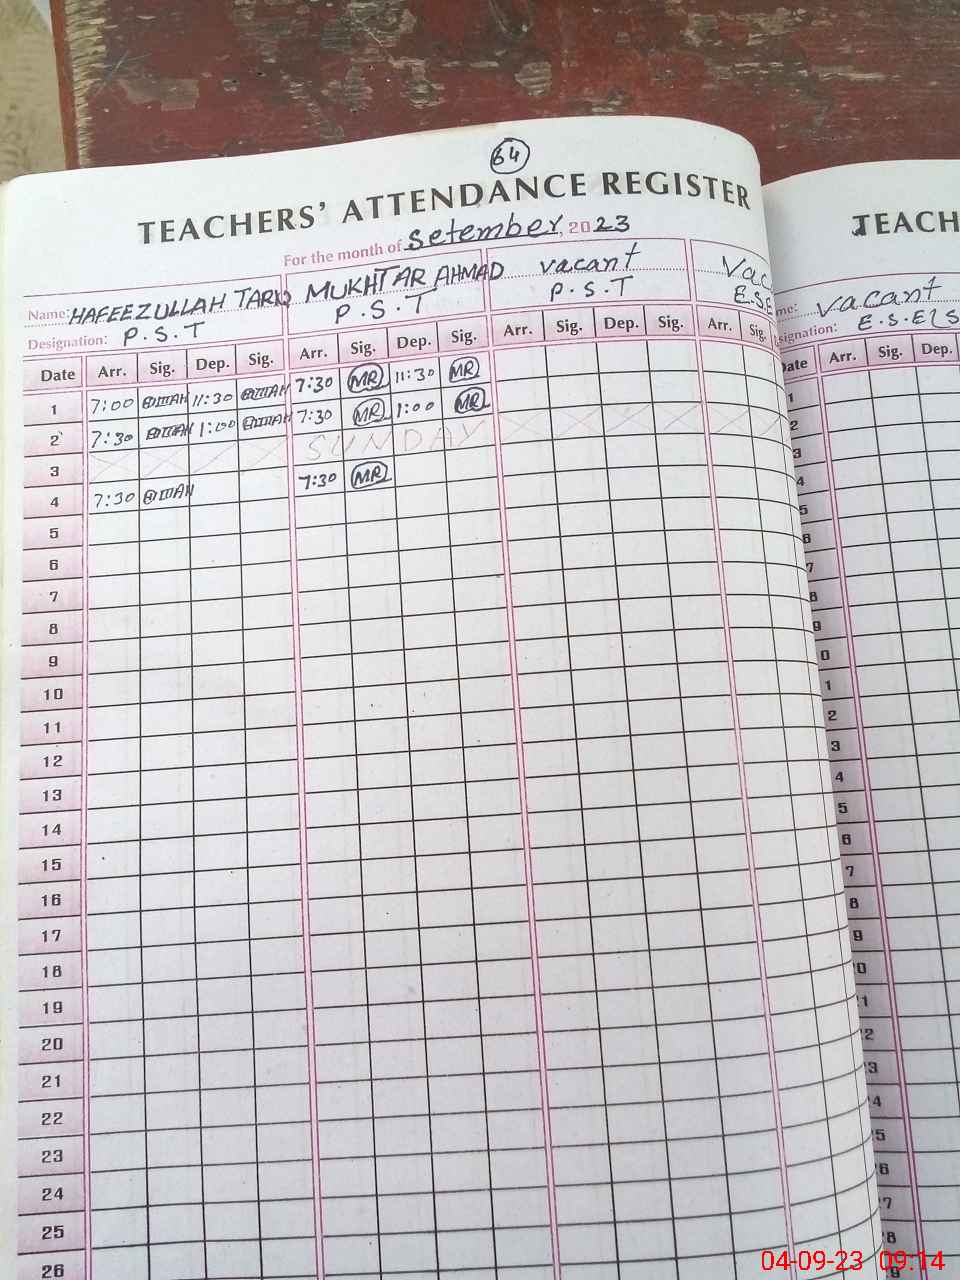 64
TEACHERS' ATTENDANCE REGISTER
For the month of Setember, 2023
Name: HAFEEZULLAH TARIQ MUKHTAR AHMAD vacant Vac
Designation: P.S.T P.S.T P.S.T E.S.E
Date Arr. Sig. Dep. Sig. Arr. Sig. Dep. Sig. Arr. Sig. Dep. Sig. Arr. Sig.
1 7:00 11:30 7:30 MR 11:30 MR
2 7:30 1:00 7:30 MR 1:00 MR
3 SUNDAY
4 7:30 7:30 MR
5
6
7
8
9
10
11
12
13
14
15
16
17
18
19
20
21
22
23
24
25
26
TEACH
me: vacant
signation: E.S.E
ate Arr. Sig. Dep.
1
2
3
4
5
6
7
8
9
0
1
2
3
4
5
6
7
8
9
0
1
2
3
4
5
6
7
8
9
04-09-23 09:14